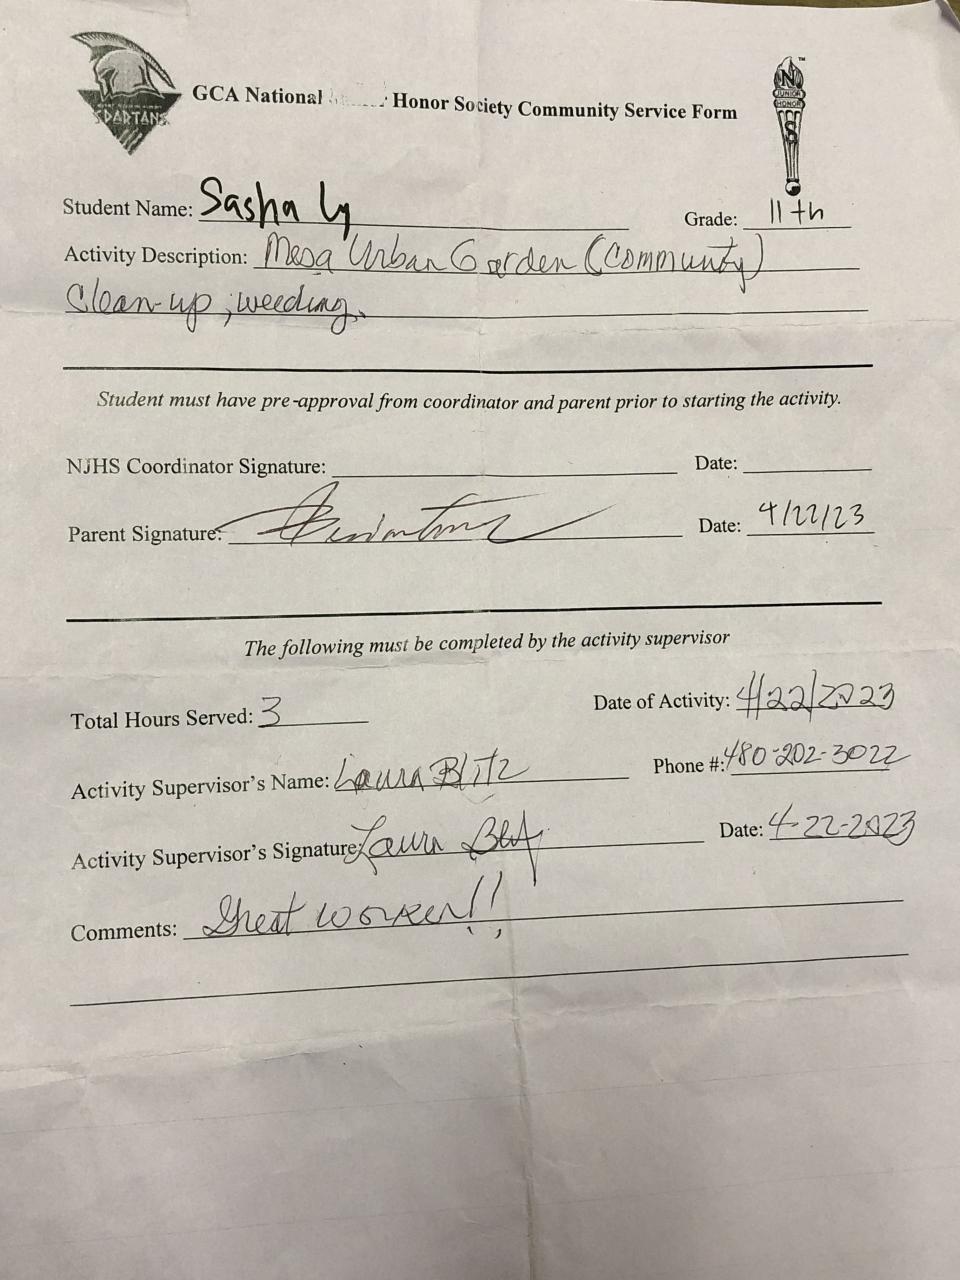 SPARTANS
GCA National Honor Society Community Service Form
N
JUNIOR
HONOR
S
Student Name: Sasha Ly Grade: 11th
Activity Description: Mesa Urban Garden (Community)
Clean-up; weeding.
Student must have pre-approval from coordinator and parent prior to starting the activity.
NJHS Coordinator Signature: Date:
Parent Signature: Date: 4/22/23
The following must be completed by the activity supervisor
Total Hours Served: 3 Date of Activity: 4/22/2023
Activity Supervisor's Name: Laura Blitz Phone #: 480-202-3022
Activity Supervisor's Signature: Laura Date: 4-22-2023
Comments: Great worker!!